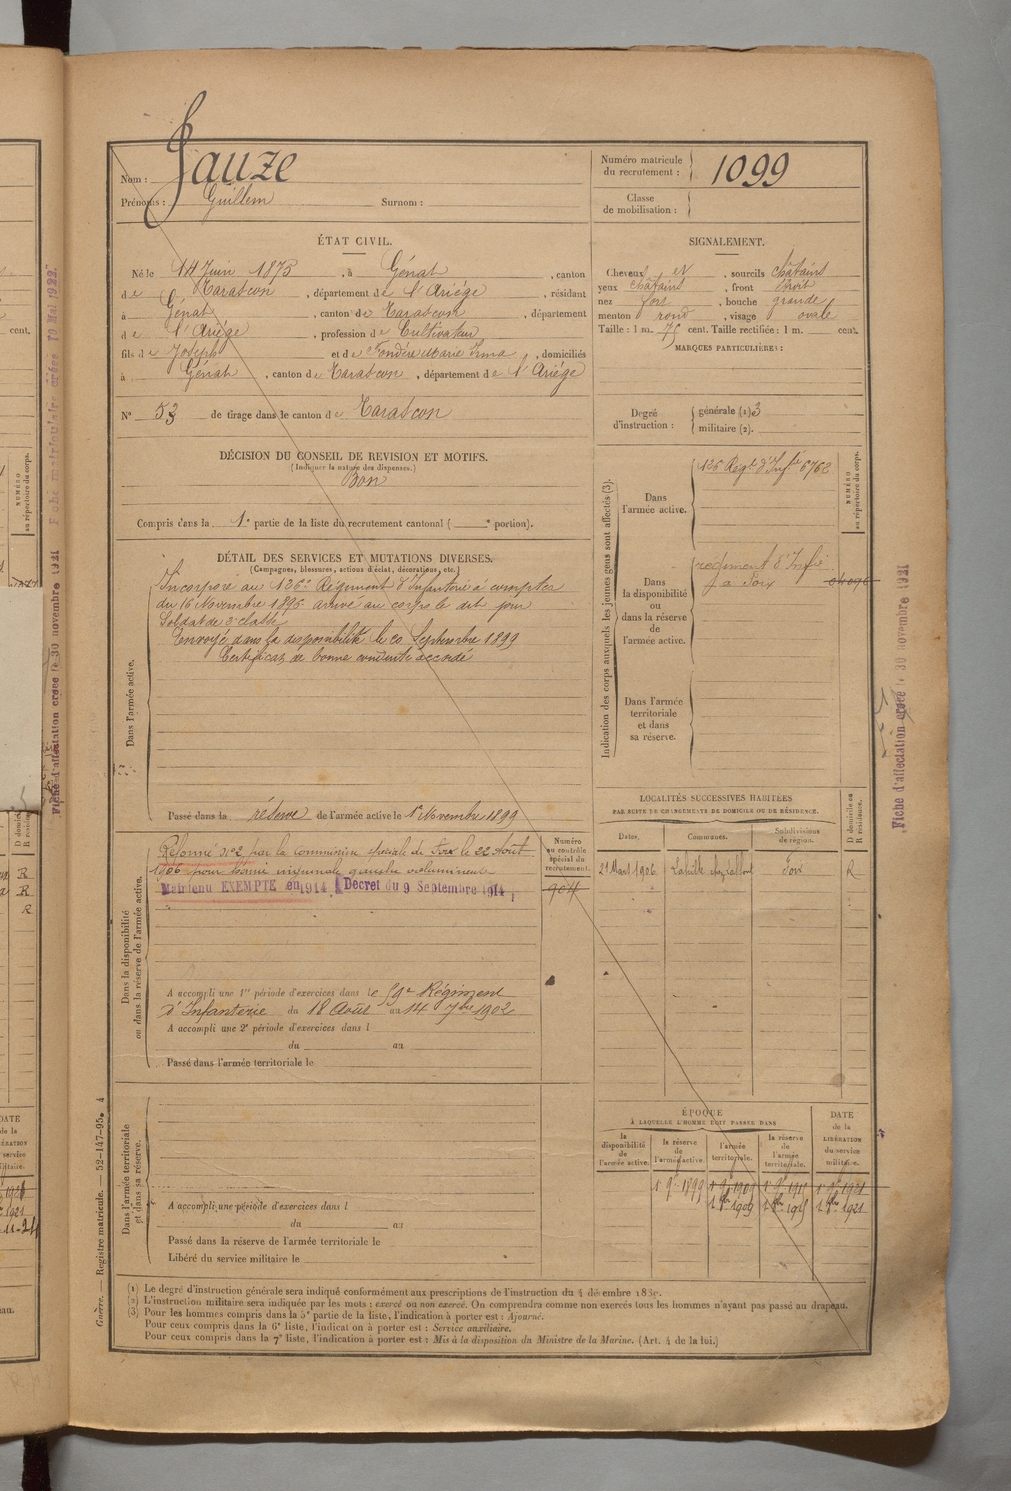 Nom : Jauze
Prénoms : Guillem Surnom :
Numéro matricule du recrutement : 1099
Classe de mobilisation :
ÉTAT CIVIL.
Né le 14 Juin 1875, à Génat, canton
de Tarascon, département de l'Ariège, résidant
à Génat, canton de Tarascon, département
de l'Ariège, profession de Cultivateur
fils de Joseph et de Fondère Marie Irma, domiciliés
à Génat, canton de Tarascon, département de l'Ariège
N° 53 de tirage dans le canton de Tarascon
SIGNALEMENT.
Cheveux et, sourcils châtains
yeux châtains, front droit
nez fort, bouche grande
menton rond, visage ovale
Taille : 1 m. 75 cent. Taille rectifiée : 1 m. cent.
MARQUES PARTICULIÈRES :
Degré d'instruction : générale (1) 3
militaire (2).
DÉCISION DU CONSEIL DE REVISION ET MOTIFS.
(Indiquer la nature des dispenses.)
Bon
Compris dans la 1e partie de la liste du recrutement cantonal ( e portion).
DÉTAIL DES SERVICES ET MUTATIONS DIVERSES.
(Campagnes, blessures, actions d'éclat, décorations, etc.)
Dans l'armée active.
Incorporé au 126e Régiment d'Infanterie à compter
du 16 Novembre 1896 arrivé au corps le dit jour
Soldat de 2e classe
Envoyé dans la disponibilité le 20 Septembre 1899
Certificat de bonne conduite accordé
Passé dans la réserve de l'armée active le 1er Novembre 1899
Indication des corps auxquels les jeunes gens sont affectés (3).
Dans l'armée active.
126 Régt d'Infie 6762
NUMÉRO au répertoire du corps.
Dans la disponibilité ou dans la réserve de l'armée active.
régiment d'Infie
à Foix
Dans l'armée territoriale et dans sa réserve.
Dans la disponibilité ou dans la réserve de l'armée active.
Réformé n°2 par la Commission spéciale de Foix le 22 Août
1906 pour hernie inguinale gauche volumineuse
Maintenu EXEMPTE en 1914 Décret du 9 Septembre 1914
Numéro au contrôle spécial du recrutement.
904
A accompli une 1re période d'exercices dans le 59e Régiment
d'Infanterie du 18 Août au 14 7bre 1902
A accompli une 2e période d'exercices dans l
du au
Passé dans l'armée territoriale le
LOCALITÉS SUCCESSIVES HABITÉES
PAR SUITE DE CHANGEMENTS DE DOMICILE OU DE RÉSIDENCE.
Dates. Communes. Subdivisions de région. D domicile ou R résidence.
Mars 1906 Foix R
Dans l'armée territoriale et dans sa réserve.
A accompli une période d'exercices dans l
du au
Passé dans la réserve de l'armée territoriale le
Libéré du service militaire le
ÉPOQUE
À LAQUELLE L'HOMME DOIT PASSER DANS
la disponibilité de l'armée active.
la réserve de l'armée active.
l'armée territoriale.
la réserve de l'armée territoriale.
DATE de la LIBÉRATION du service militaire.
(1) Le degré d'instruction générale sera indiqué conformément aux prescriptions de l'instruction du 4 décembre 1889.
(2) L'instruction militaire sera indiquée par les mots : exercé ou non exercé. On comprendra comme non exercés tous les hommes n'ayant pas passé au drapeau.
(3) Pour les hommes compris dans la 5e partie de la liste, l'indication à porter est : Ajourné.
Pour ceux compris dans la 6e liste, l'indication à porter est : Service auxiliaire.
Pour ceux compris dans la 7e liste, l'indication à porter est : Mis à la disposition du Ministre de la Marine. (Art. 4 de la loi.)
Guerre. — Registre matricule. — 52-147-95. 4
Fiche d'affectation créée le 30 novembre 1921
Fiche d'affectation créée le 30 novembre 1921 Fiche matriculaire créée 10 Mai 1922.